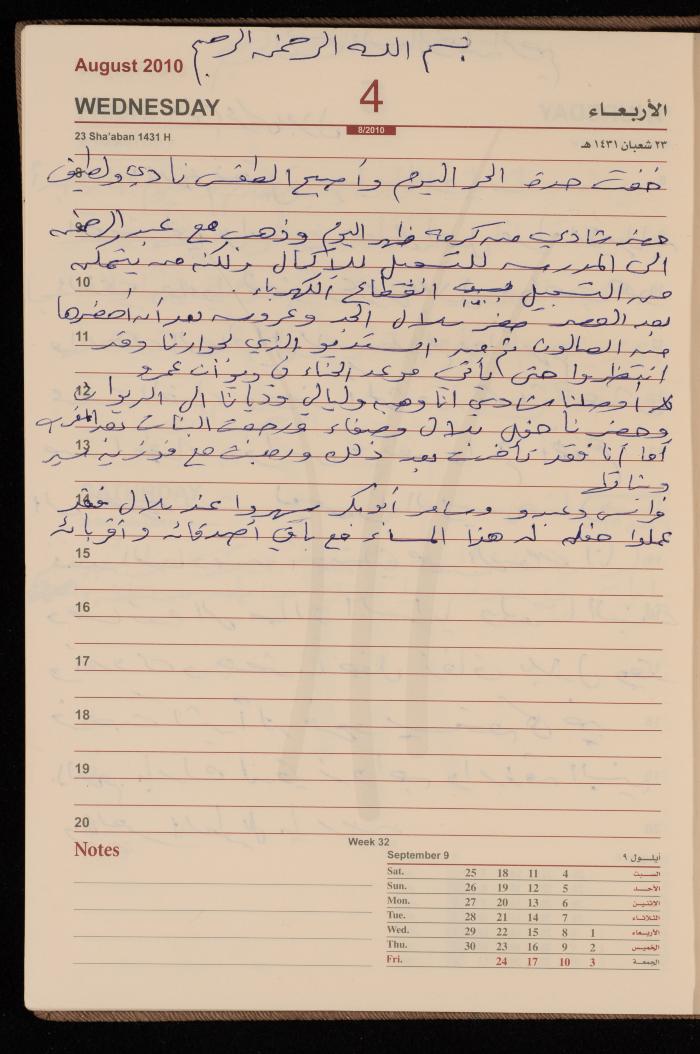 بسم الله الرحمن الرحيم
August 2010
WEDNESDAY 4 الأربعاء
8/2010
23 Sha'aban 1431 H ٢٣ شعبان ١٤٣١ هـ
8
خفت حدة الحر اليوم وأصبح الطقس نادي ولطيف
حضر شادي من كرمه ظهر اليوم وذهب مع عبد
الى المدرسه للتسجيل للأكمال ولكنه من يتمكن
10
من التسجيل بسبب انقطاع الكهرباء .
بعد العصر حضر بلال الجد وعروسه بعد أن أحضرها
11
من الصالون ثم الستديو الذي بجوارنا وقد
انتظروا حتى يأتي موعد الحناء في ديوان عمرو
12
أوصلنا شادي أنا وهبه وليالي وديانا الى الديوان
وحضرنا حفل بلال وصفاء ورجعت البنات بعد المغرب
13
أما أنا فقد تأخرت بعد ذلك ورجعت مع فوزية
14
فراس وعبد و وسامر أبوبكر سهروا عند بلال فقد
عملوا حفله له هذا المساء مع باقي أصدقائه وأقربائه
15
16
17
18
19
20
Notes
Week 32
September 9 أيلول ٩
Sat. 25 18 11 4 السبت
Sun. 26 19 12 5 الأحد
Mon. 27 20 13 6 الاثنين
Tue. 28 21 14 7 الثلاثاء
Wed. 29 22 15 8 1 الأربعاء
Thu. 30 23 16 9 2 الخميس
Fri. 24 17 10 3 الجمعة